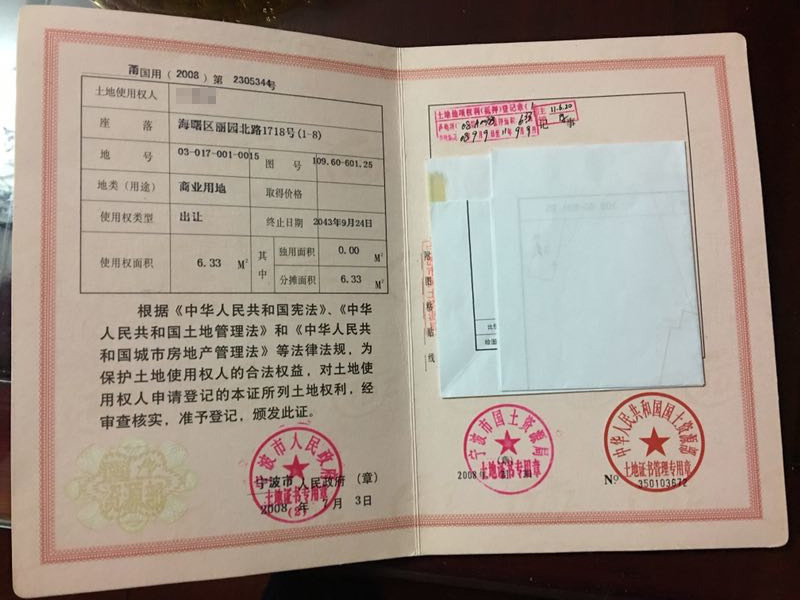 甬国用（2008）第 2305344号
土地使用权人
座 落 海曙区丽园北路1718号(1-8)
地 号 03-017-001-0015 图 号 109.60-601.25
地类（用途） 商业用地 取得价格
使用权类型 出让 终止日期 2043年9月24日
使用权面积 6.33 M² 其中 独用面积 0.00 M²
分摊面积 6.33 M²
根据《中华人民共和国宪法》、《中华
人民共和国土地管理法》和《中华人民共
和国城市房地产管理法》等法律法规，为
保护土地使用权人的合法权益，对土地使
用权人申请登记的本证所列土地权利，经
审查核实，准予登记，颁发此证。
宁波市人民政府
土地证书专用章
(2)
宁波市 人民政府 （章）
2008 年 7 月 3 日
土地他项权利(抵押)登记章(1
11.6.20
记 事
附图粘贴线
宁波市国土资源局
土地证书专用章
2008 年
中华人民共和国国土资源部
土地证书管理专用章
Nº 350103672